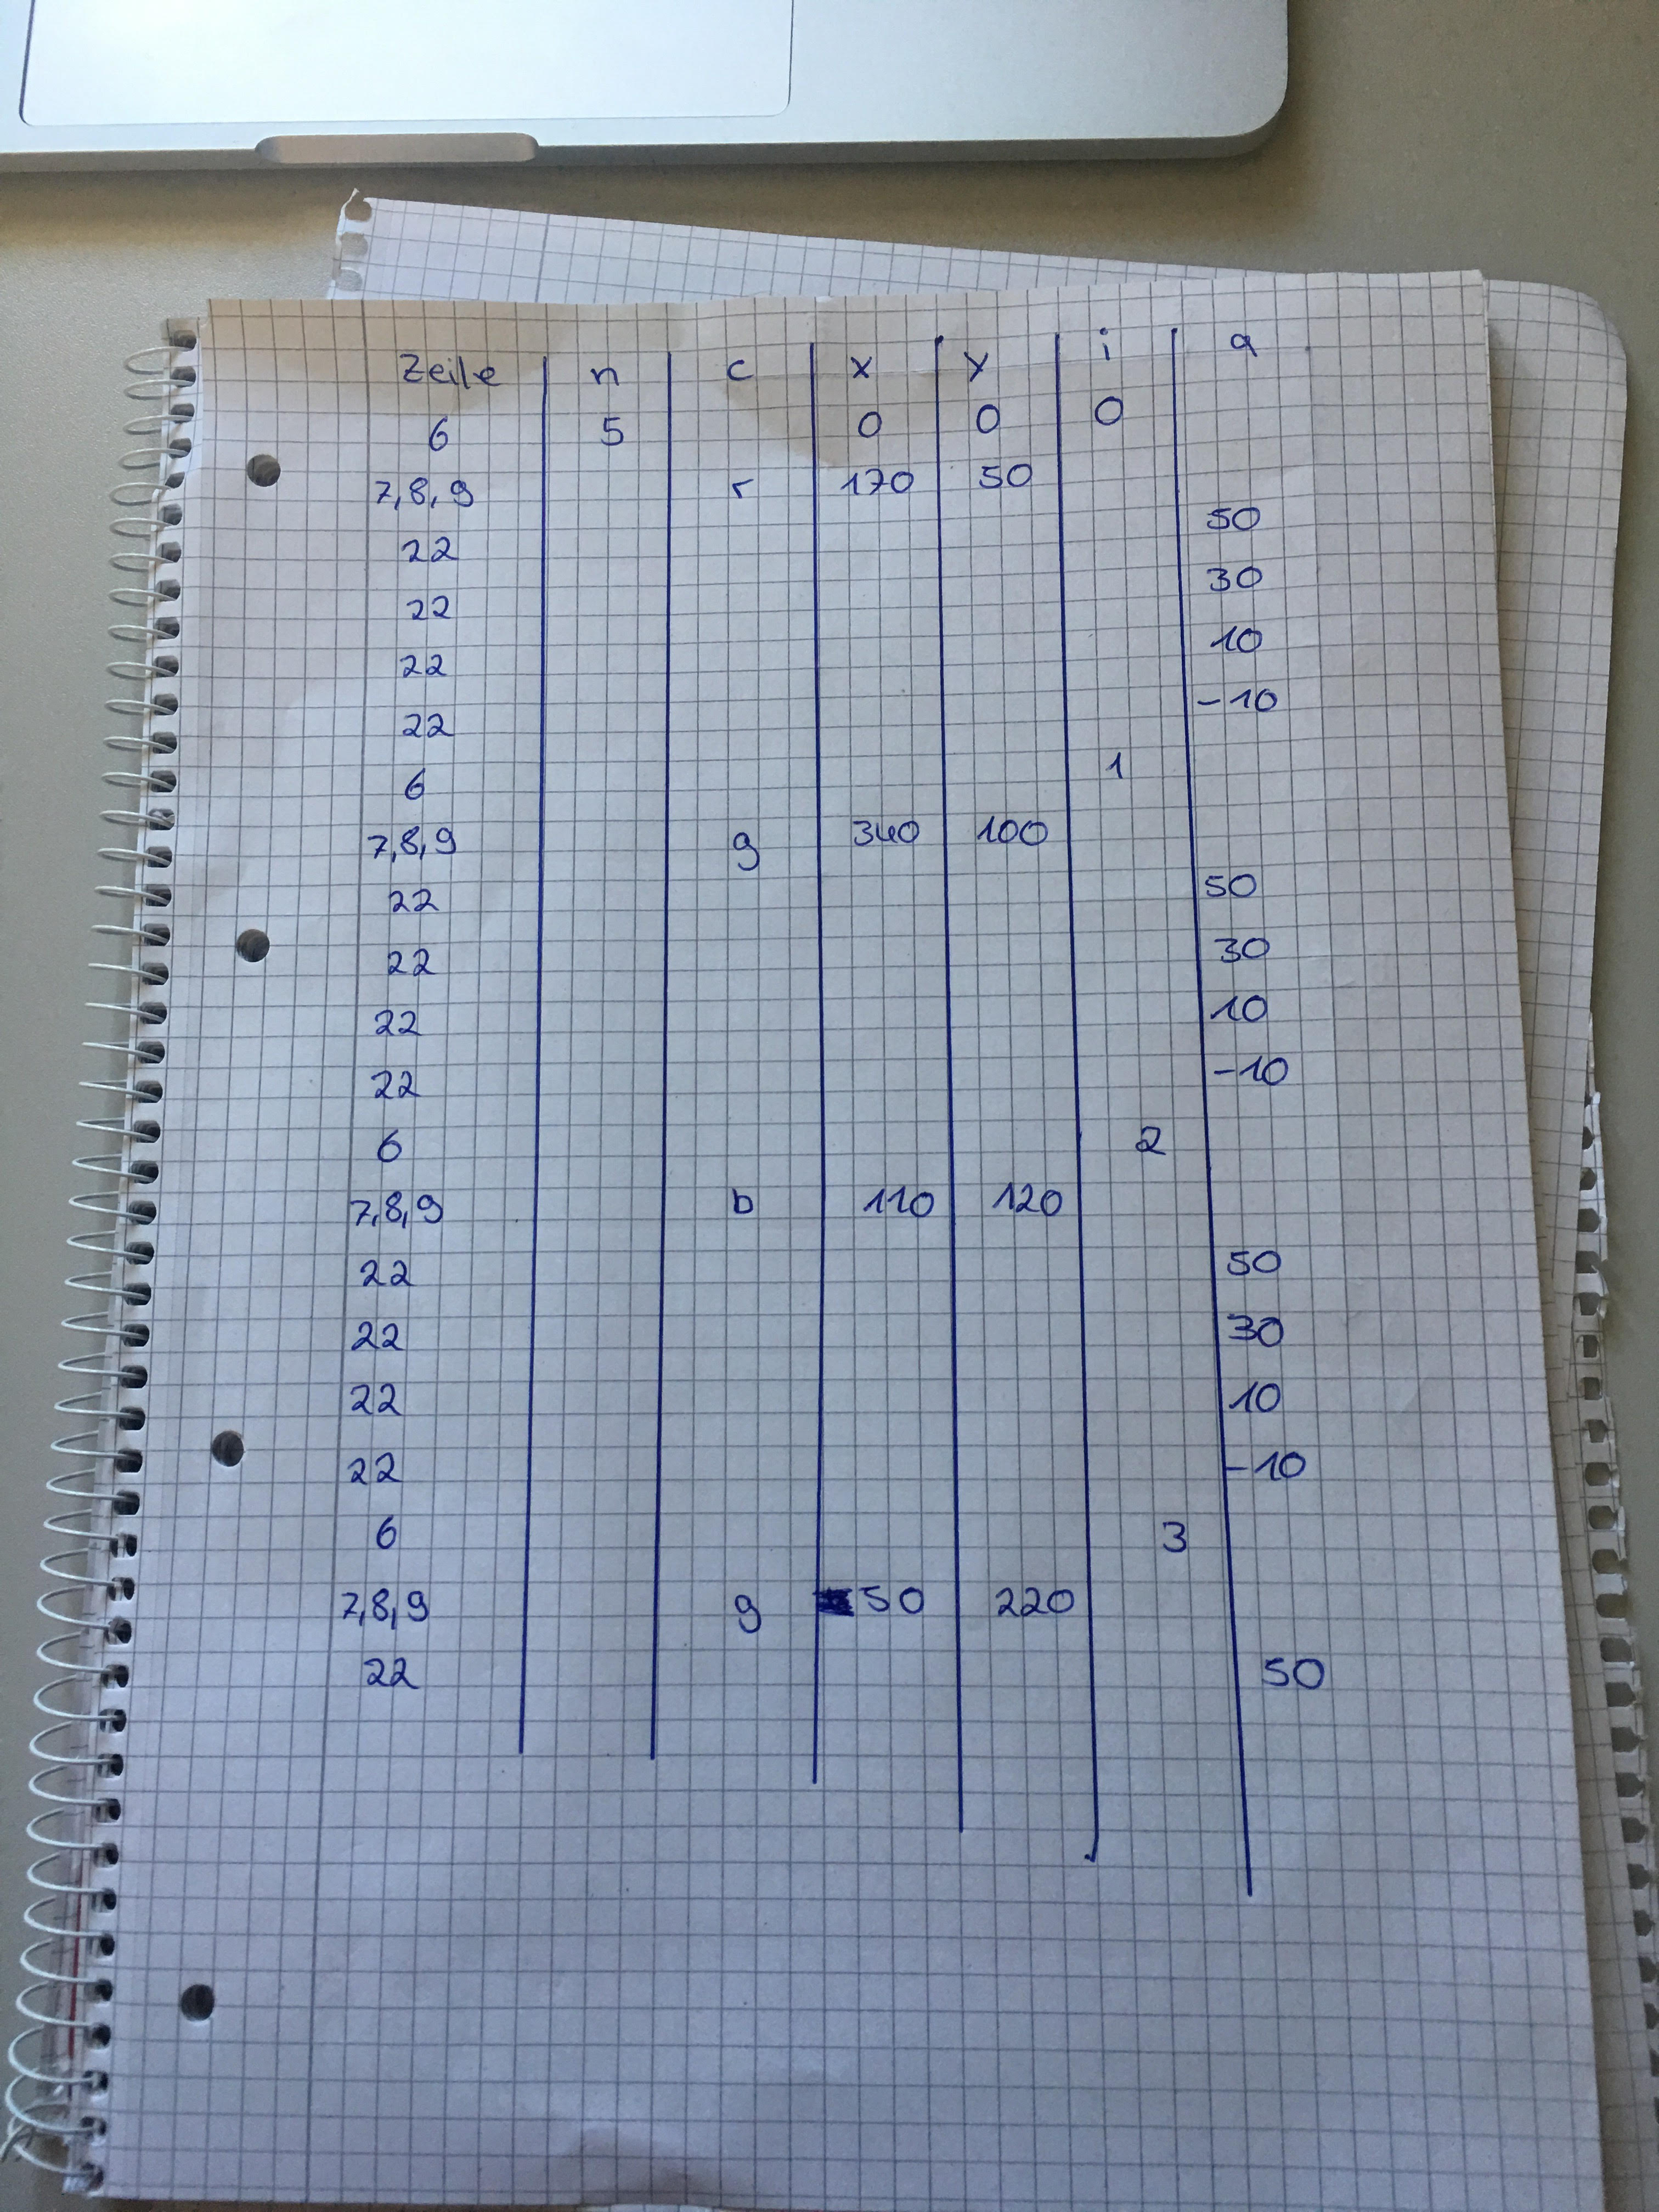 Zeile n c x y i a
6 5 0 0 0
7,8,9 r 170 50
22 50
22 30
22 10
22 -10
6 1
7,8,9 g 340 100
22 50
22 30
22 10
22 -10
6 2
7,8,9 b 110 120
22 50
22 30
22 10
22 -10
6 3
7,8,9 g 50 220
22 50